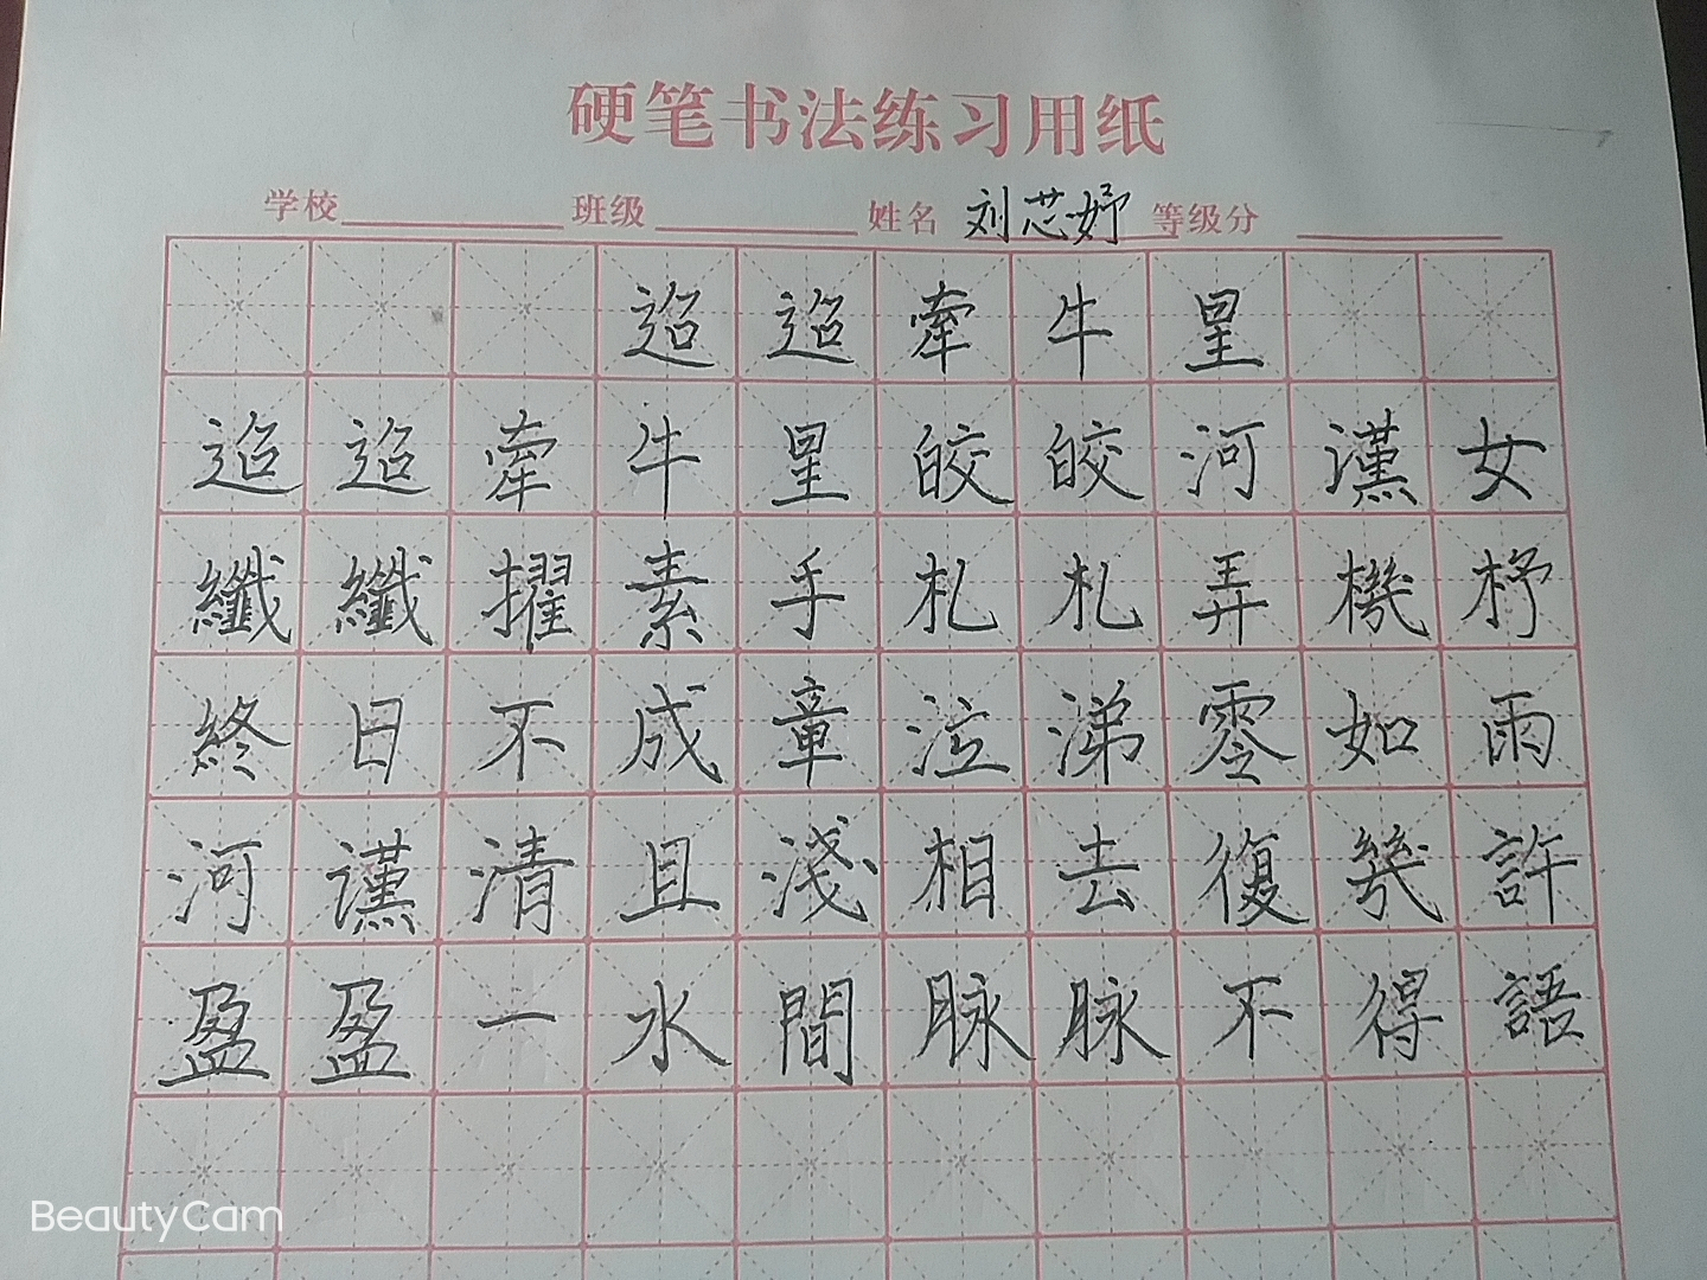 硬笔书法练习用纸
学校 班级 姓名 刘芯妤 等级分
迢迢牽牛星
迢迢牽牛星皎皎河漢女
纖纖擢素手札札弄機杼
終日不成章泣涕零如雨
河漢清且淺相去復幾許
盈盈一水間脉脉不得語
BeautyCam